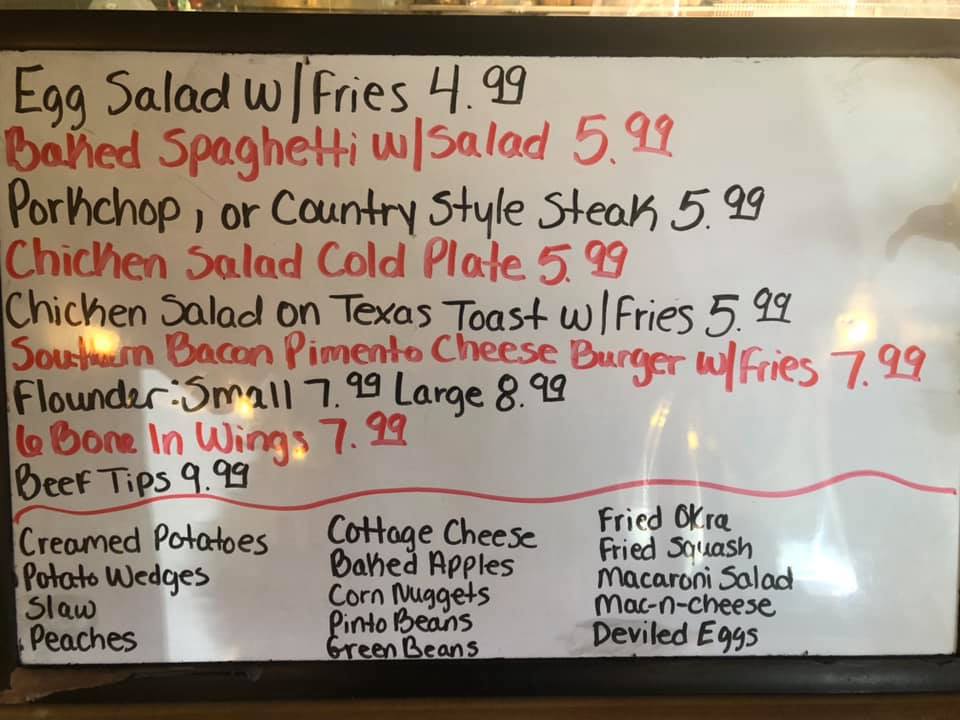 Egg Salad w/Fries 4.99
Baked Spaghetti w/Salad 5.99
Porkchop, or Country Style Steak 5.99
Chicken Salad Cold Plate 5.99
Chicken Salad on Texas Toast w/Fries 5.99
Southern Bacon Pimento Cheese Burger w/Fries 7.99
Flounder: Small 7.99 Large 8.99
6 Bone In Wings 7.99
Beef Tips 9.99
Creamed Potatoes
Potato Wedges
Slaw
Peaches
Cottage Cheese
Baked Apples
Corn Nuggets
Pinto Beans
Green Beans
Fried Okra
Fried Squash
Macaroni Salad
Mac-n-cheese
Deviled Eggs